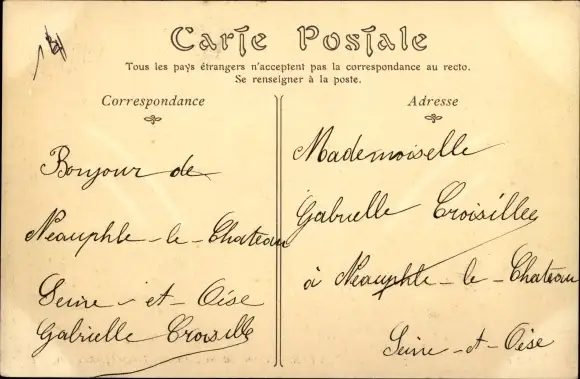 Carte Postale
Tous les pays étrangers n'acceptent pas la correspondance au recto.
Se renseigner à la poste.
Correspondance
Bonjour de
Neauphle-le-Chateau
Seine-et-Oise
Gabrielle Croisille
Adresse
Mademoiselle
Gabrielle Croisilles
à Neauphle-le-Chateau
Seine-et-Oise